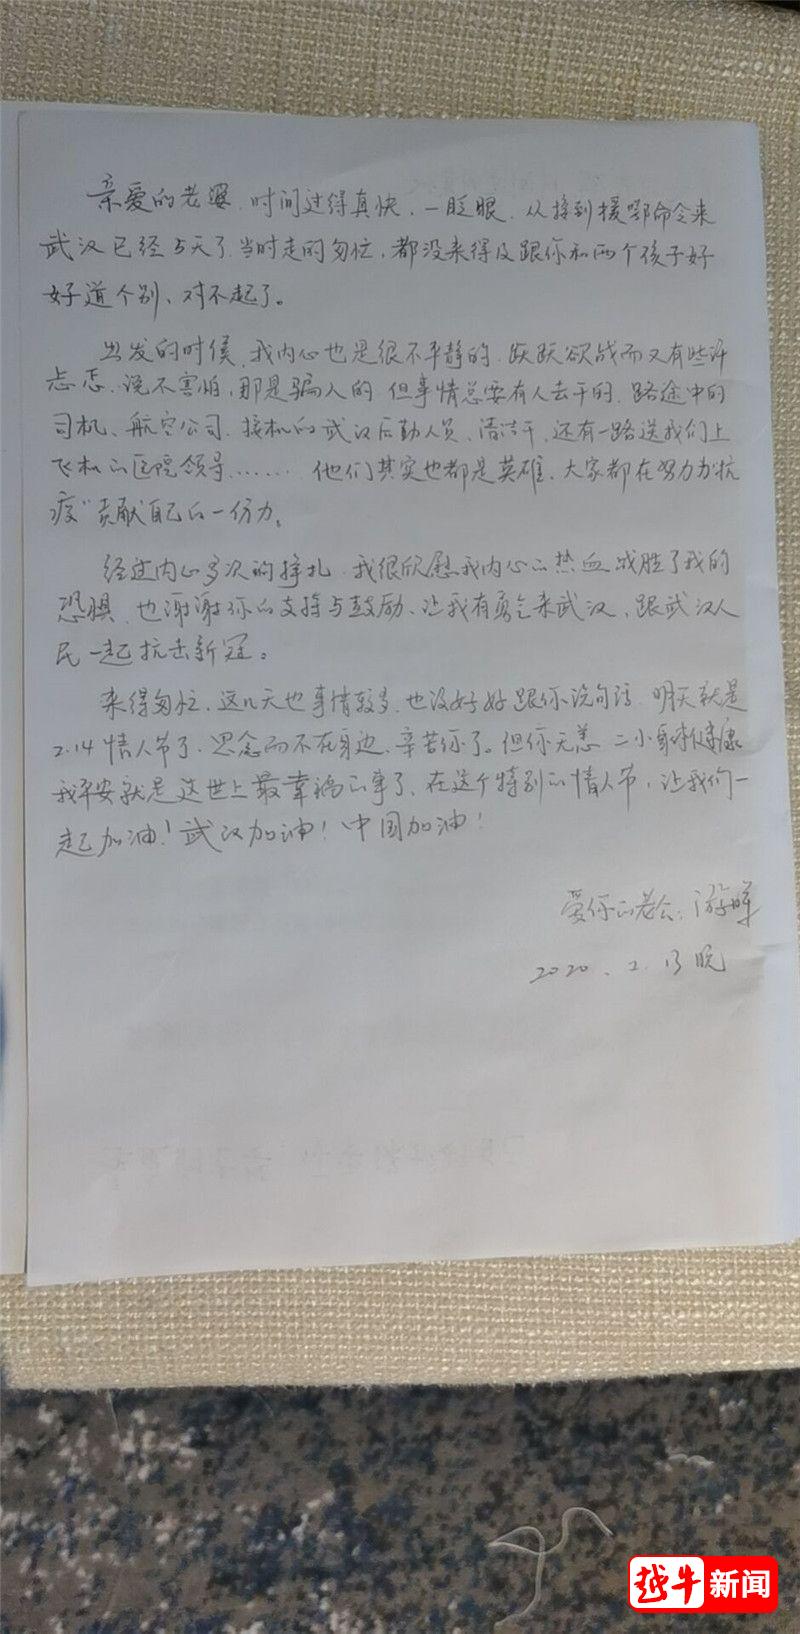 亲爱的老婆,时间过得真快,一眨眼,从接到援鄂命令来
武汉已经5天了,当时走的匆忙,都没来得及跟你和两个孩子好
好道个别、对不起了。
出发的时候,我内心也是很不平静的,跃跃欲战而又有些许
忐忑,说不害怕,那是骗人的,但事情总要有人去干的,路途中的
司机、航空公司、接机的武汉后勤人员、清洁工,还有一路送我们上
飞机的医院领导……他们其实也都是英雄,大家都在努力为"抗
疫"贡献自己的一份力。
经过内心多次的挣扎,我很欣慰我内心的热血战胜了我的
恐惧,也谢谢你的支持与鼓励、让我有勇气来武汉,跟武汉人
民一起抗击新冠。
来得匆忙,这几天也事情较多,也没好好跟你说句话,明天就是
2.14情人节了,思念而不在身边,辛苦你了。但你无恙,二小身体健康
我平安就是这世上最幸福的事了,在这个特别的情人节,让我们一
起加油!武汉加油!中国加油!
爱你的老公:游晖
2020.2.13晚
越牛新闻